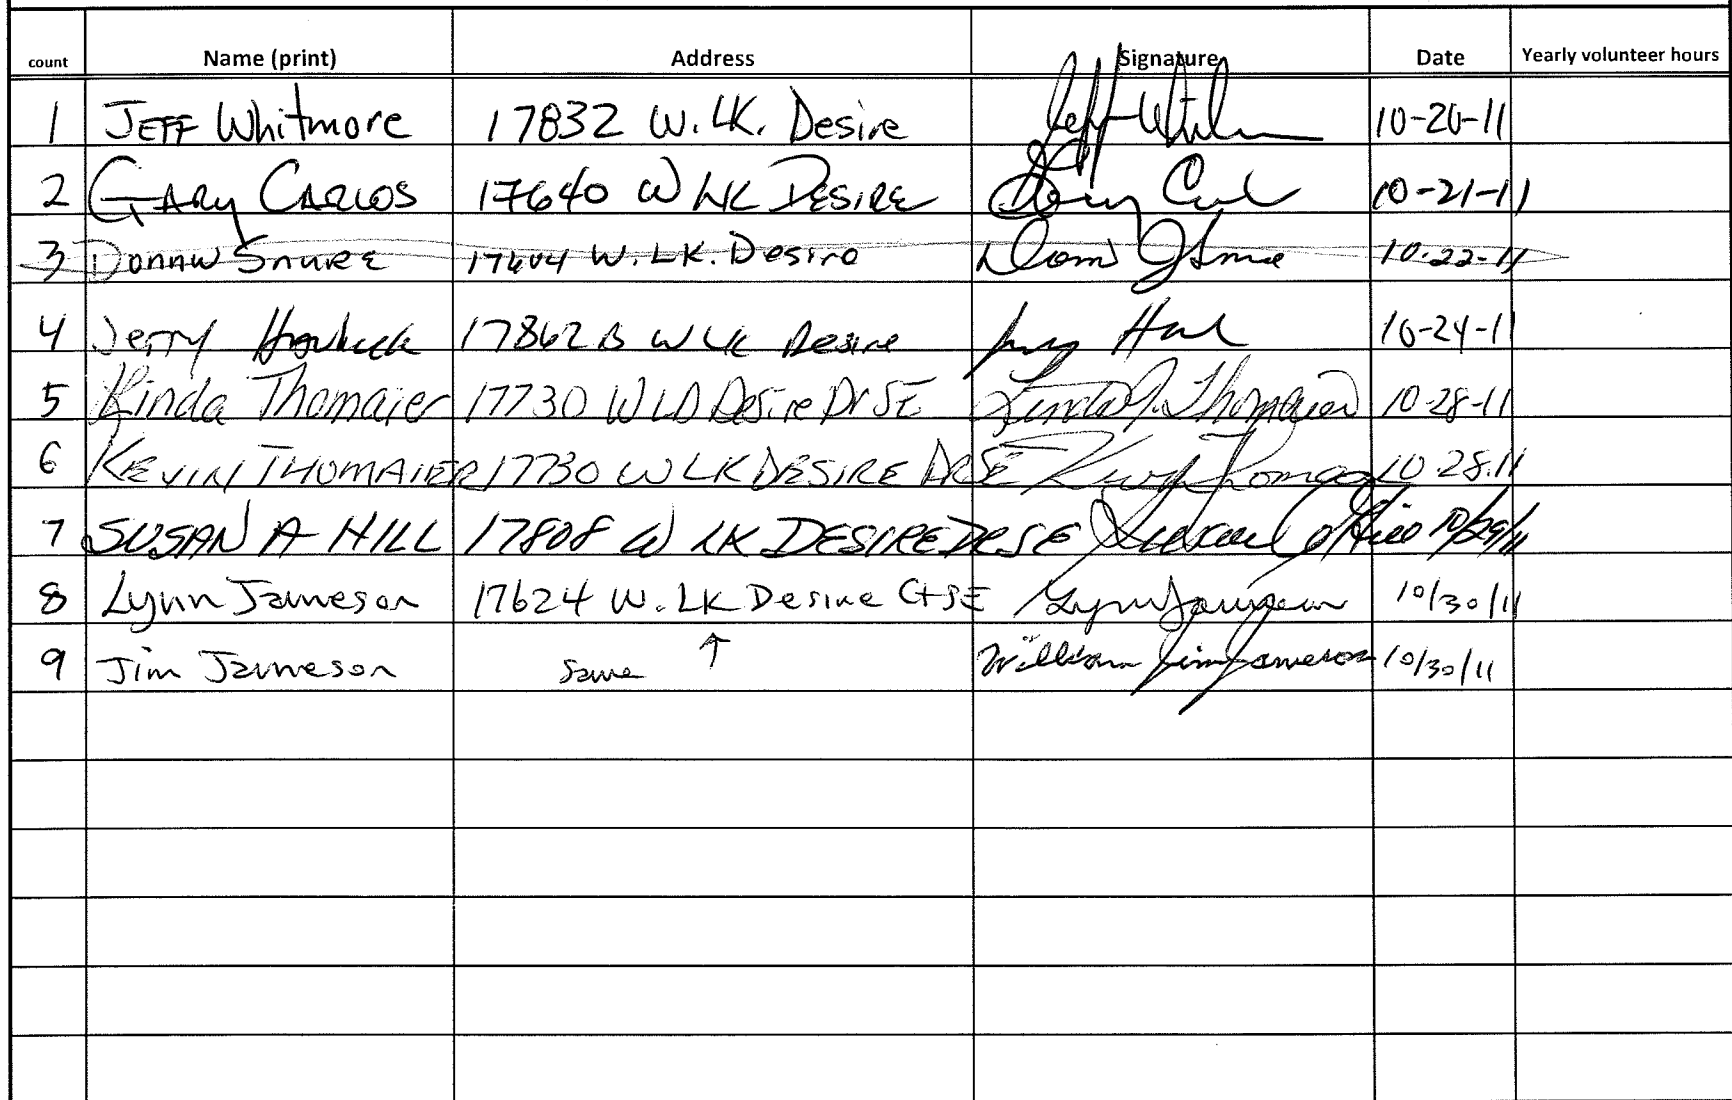 count Name (print) Address Signature Date Yearly volunteer hours
1 JEFF Whitmore 17832 W. LK. Desire Jeff Whitmore 10-20-11
2 GARY CARLOS 17640 W LK DESIRE Gary 10-21-11
3 W. LK. Desire 10-22-11
4 Jerry W LK Desire Jerry 10-24-11
5 Linda Thomaier 17730 W LD Desire Dr SE Linda J. Thomaier 10-28-11
6 KEVIN THOMAIER 17730 W LK DESIRE DR SE 10.28.11
7 SUSAN A HILL 17808 W LK DESIRE DR SE Susan A Hill 10/29/11
8 Lynn Jameson 17624 W. LK Desire Ct SE Lynn Jameson 10/30/11
9 Jim Jameson same ↑ William "Jim" Jameson 10/30/11